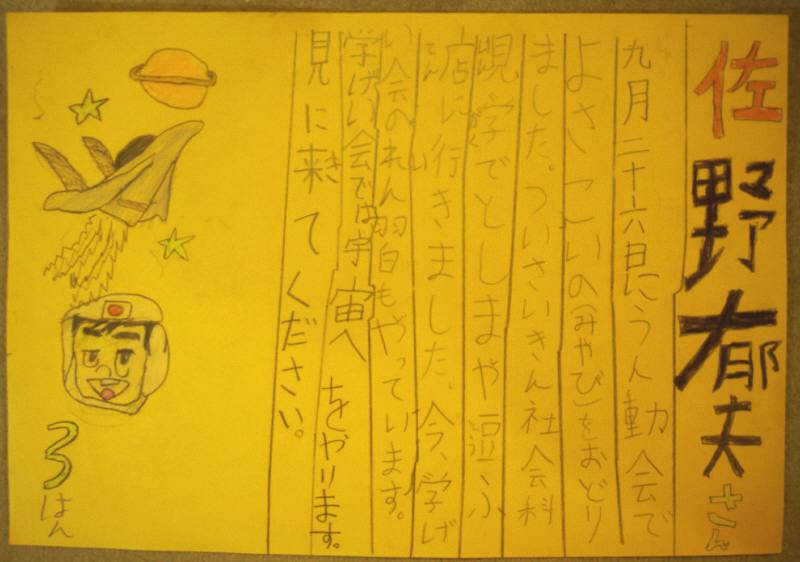 佐野郁夫さん
九月二十六日にうん動会で
よさこいの(みやび)をおどり
ました。ついさいきん社会科
見学でとしまや豆ふ
店に行きました。今、学げ
い会のれん習もやっています。
学げい会では宇宙へをやります。
見に来てください。
3はん